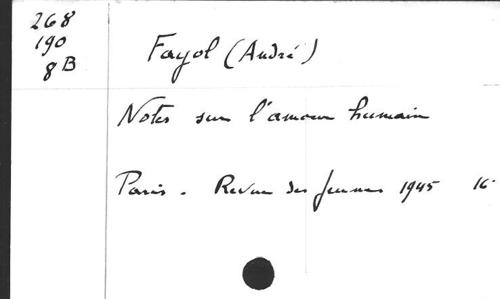 268
190
8B
Fayol (André)
Notes sur l'amour humain
Paris. Revue des Jeunes 1945 16